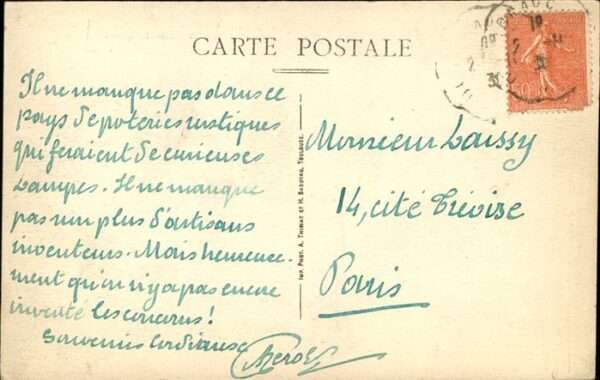 CARTE POSTALE
Il ne manque pas dans ce
pays de poteries rustiques
qui feraient de curieuses
lampes. Il ne manque
pas non plus d'artisans
inventeurs. Mais heureuse-
ment qu'on n'y a pas encore
inventé les concours!
Souvenirs cordiaux
Monsieur Laissy
14, cité Trévise
Paris